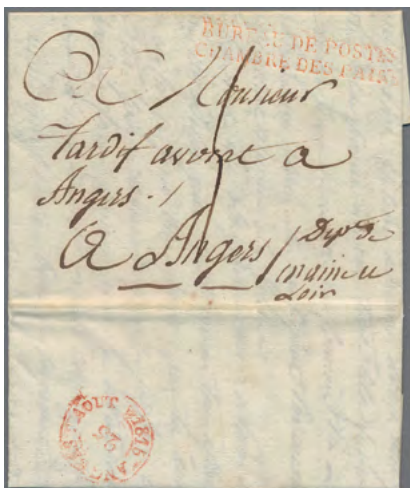 BUREAU DE POSTES
CHAMBRE DES PAIRS
Monsieur
Tardif avocat a
Angers
A Angers
Dep. de
maine et
Loir
AOUT 1816
25